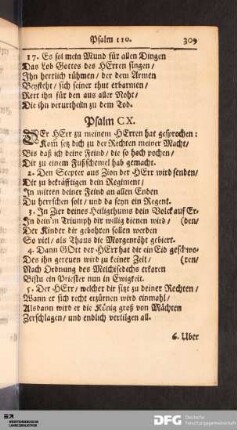 Psalm 110. 309
17. Es sol mein Mund für allen Dingen
Das Lob Gottes des HErren singen/
Ihn herrlich rühmen/ der dem Armen
Beysteht/ sich seiner thut erbarmen/
Rett ihn für den aus aller Noht/
Die ihn verurtheiln zu dem Tod.
Psalm CX.
DEr HErr zu meinem HErren hat gesprochen:
Kom setz dich zu der Rechten meiner Macht/
Bis daß ich deine Feind/ die so hoch pochen/
Dir zu einem Fußschemel hab gemacht.
2. Den Scepter aus Zion der HErr wird senden/
Dir zu bekräfftigen dein Regiment/
In mitten deiner Feind an allen Enden
Du herrschen solt/ und da seyn ein Regent.
3. In Zier deines Heiligthums dein Volck auf Er-
In deim'n Triumph dir willig dienen wird/ (den/
Der Kinder dir gebohren sollen werden
So viel/ als Thaus die Morgenröht gebiert.
4. Dann GOtt der HErr hat dir ein Eid geschwo-
Des ihn gereuen wird zu keiner Zeit/ (ren/
Nach Ordnung des Melchisedechs erkoren
Bistu ein Priester nun in Ewigkeit.
5. Der HErr/ welcher dir sitzt zu deiner Rechten/
Wann er sich recht erzürnen wird einmahl/
Alsdann wird er die König groß von Mächten
Zerschlagen/ und endlich vertilgen all.
6. Uber
DFG